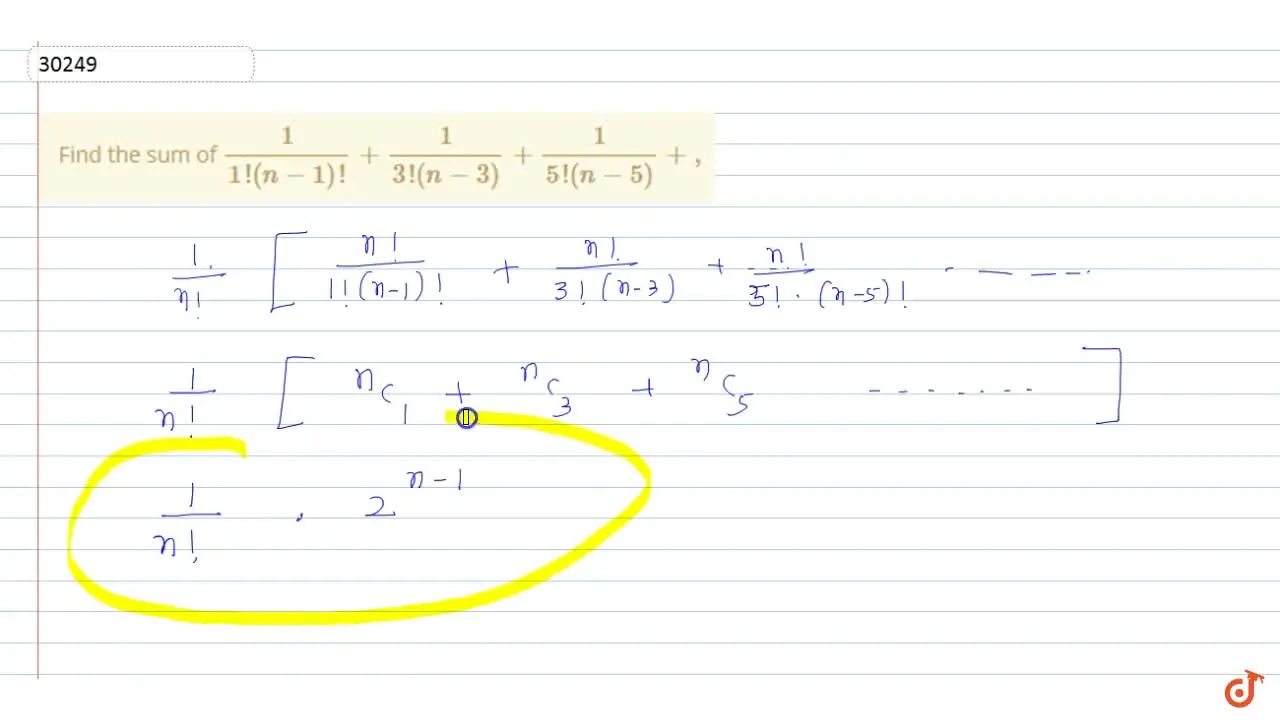 30249
Find the sum of 1/(1!(n − 1)!) + 1/(3!(n − 3)) + 1/(5!(n − 5)) + ,
1/n! [ n!/(1!(n-1)!) + n!/(3!(n-3)) + n!/(5!·(n-5)!) - — — —
1/n! [ ⁿC₁ + ⁿC₃ + ⁿC₅ - - - - - - - ]
1/n! . 2ⁿ⁻¹